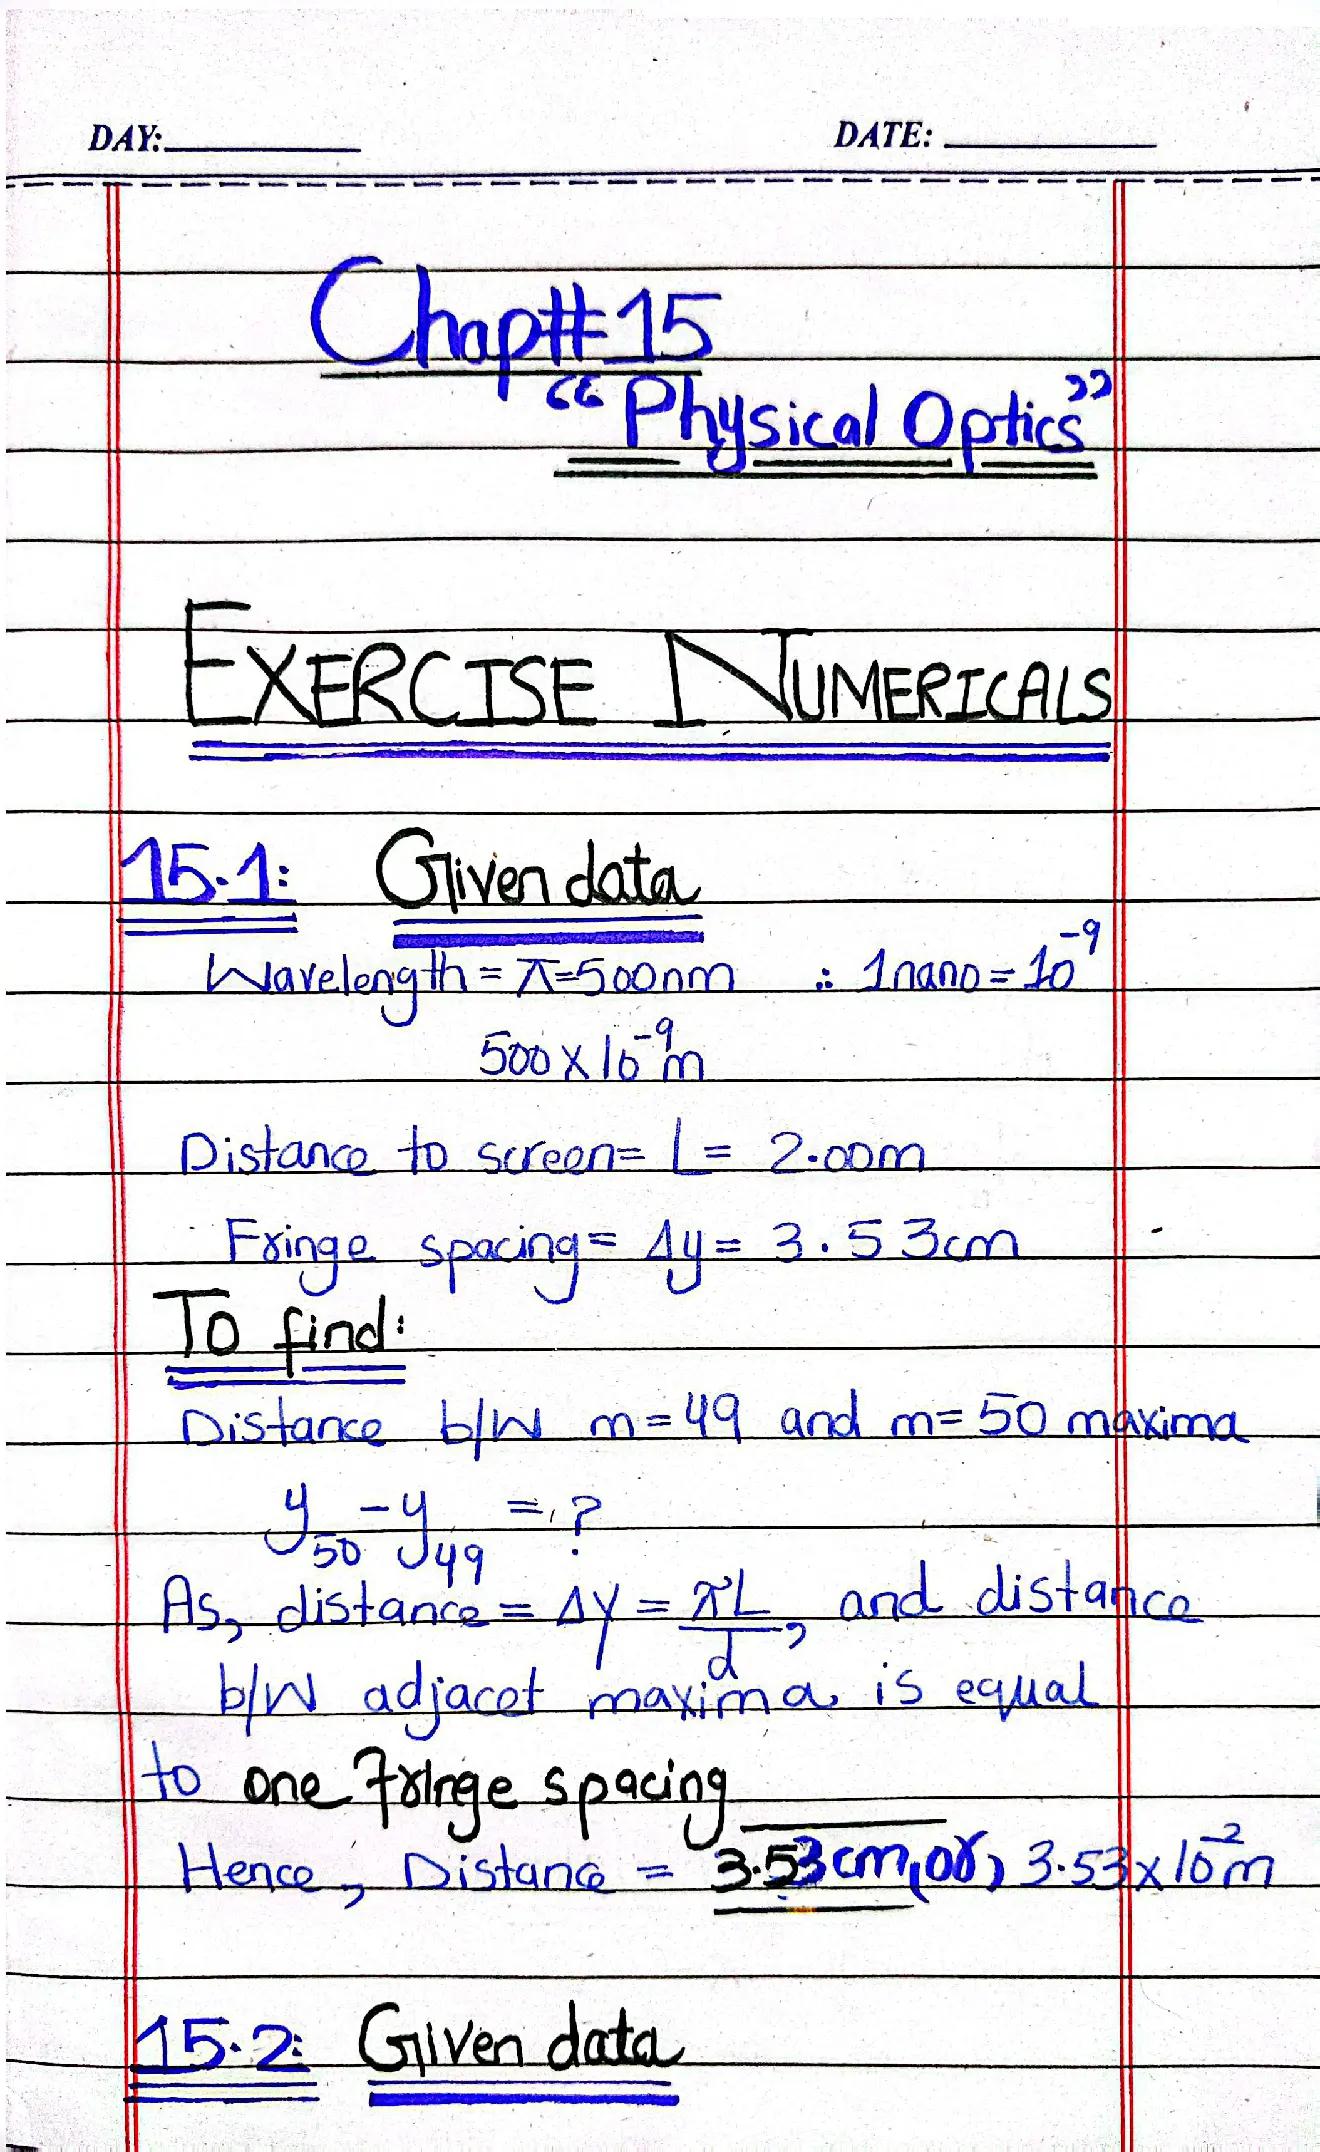 DAY: DATE:
Chapt#15
“Physical Optics”
EXERCISE NUMERICALS
15.1: Given data
Wavelength = λ = 500nm ∴ 1nano = 10⁻⁹
500 x 10⁻⁹m
Distance to screen = L = 2.00m
Fringe spacing = Δy = 3.53cm
To find:
Distance b/w m = 49 and m = 50 maxima
y₅₀ - y₄₉ = ?
As, distance = Δy = λL/d, and distance
b/w adjacet maxima is equal
to one fringe spacing
Hence, Distance = 3.53cm, or, 3.53 x 10⁻²m
15.2: Given data